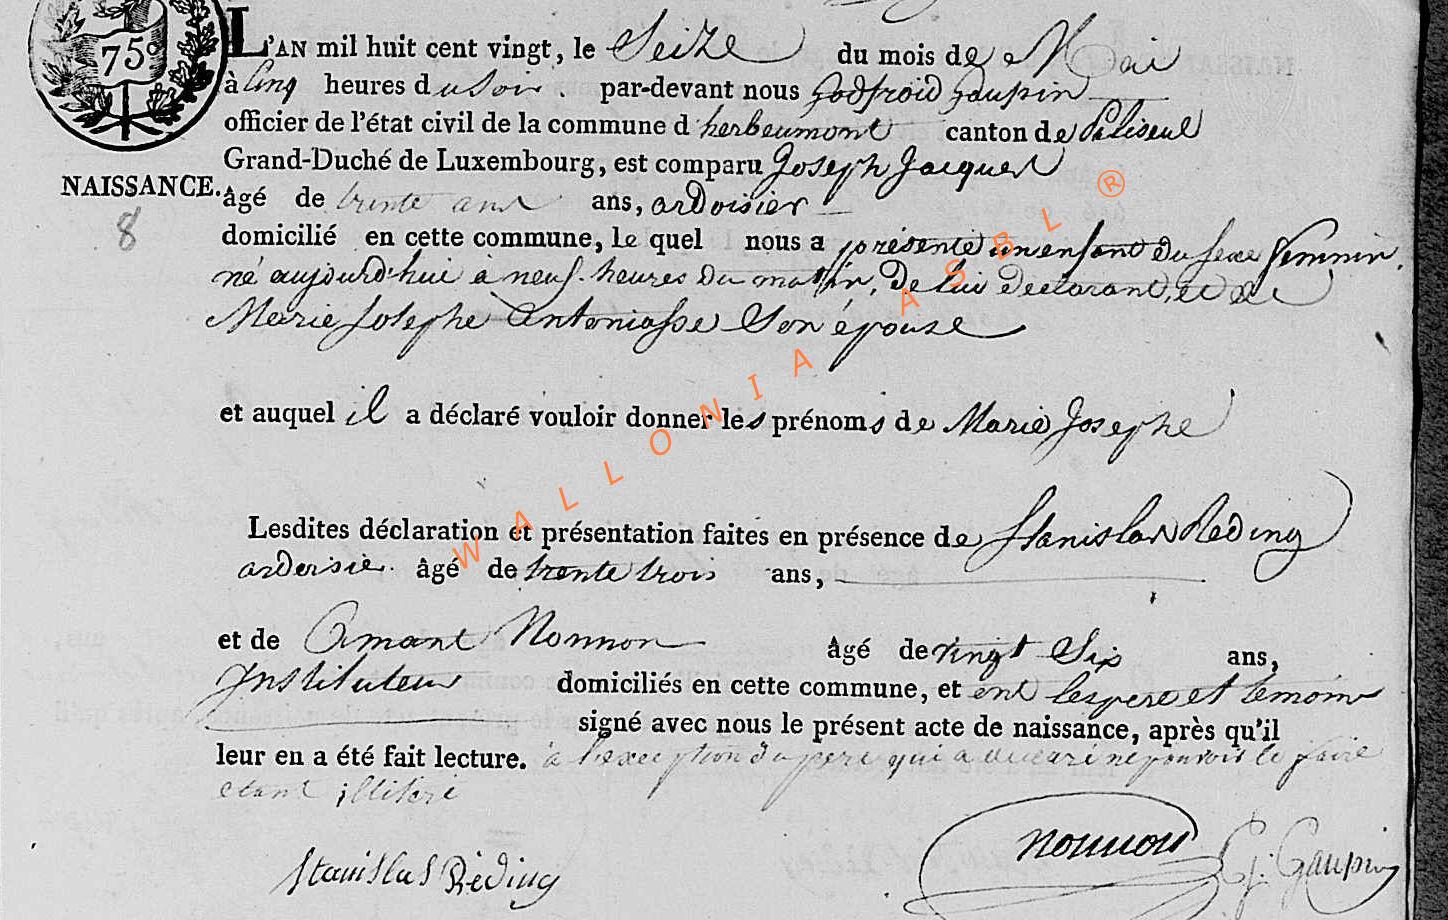 75c
L'AN mil huit cent vingt, le Seize du mois de Mai
à Cinq heures du Soir. par-devant nous Godfroid Gaupin
officier de l'état civil de la commune d'herbeumont canton de Paliseul
Grand-Duché de Luxembourg, est comparu Joseph Jacques
NAISSANCE.
8
âgé de trente ans ans, ardoisier
domicilié en cette commune, le quel nous a présenté un enfant du sexe féminin.
né aujourd'hui à neuf heures du matin, De lui Declarant, et de
Marie Josephe Antoniasse Son épouse
et auquel il a déclaré vouloir donner les prénoms de Marie Josephe
Lesdites déclaration et présentation faites en présence de Stanislas Reding
ardoisier. âgé de trente trois ans,
et de Amant Nonnon âgé de vingt Six ans,
Instituteur domiciliés en cette commune, et ont les pere et temoins
signé avec nous le présent acte de naissance, après qu'il
leur en a été fait lecture. à l'exception du pere qui a declaré ne pouvoir le faire
etant illiteré
nonnon G. Gaupin
Stanislas Réding
WALLONIA ASBL ®